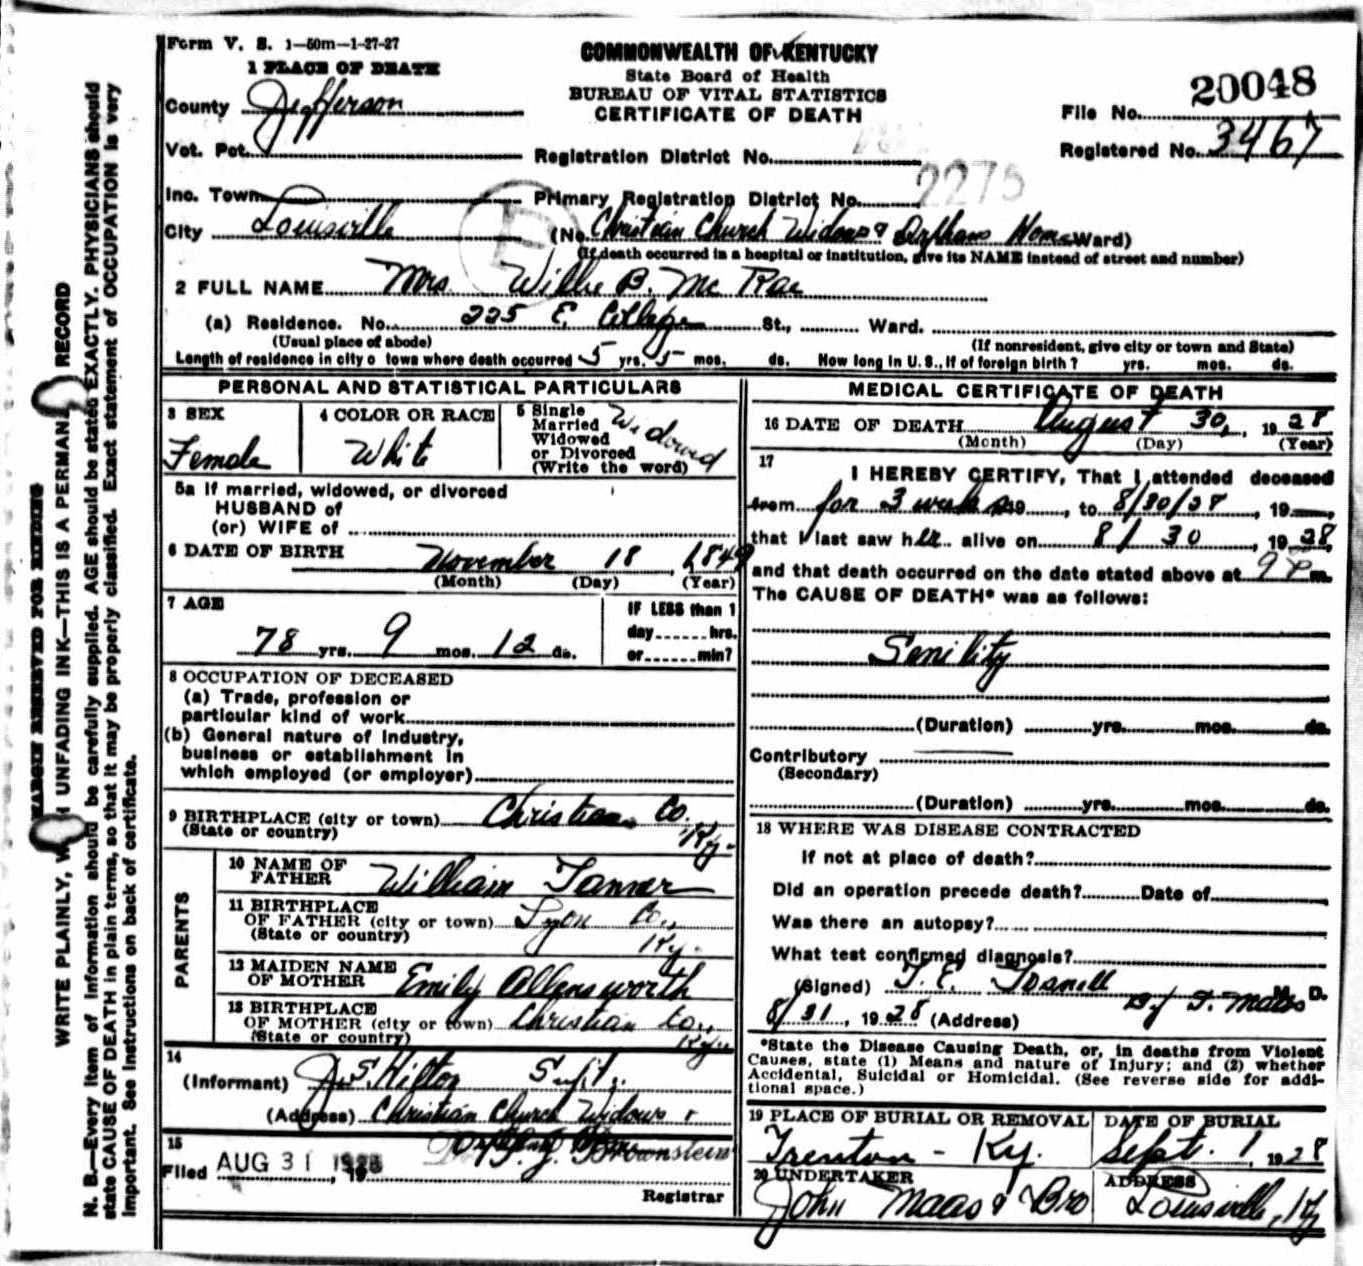 Form V. S. 1—50m—1-27-27
COMMONWEALTH OF KENTUCKY
State Board of Health
BUREAU OF VITAL STATISTICS
CERTIFICATE OF DEATH
File No. 20048
Registered No. 3467
1 PLACE OF DEATH
County Jefferson
Vot. Pct.
Registration District No.
Inc. Town
Primary Registration District No. 2275
City Louisville (No. Christian Church Widows & Orphans Home Ward)
(If death occurred in a hospital or institution, give its NAME instead of street and number)
2 FULL NAME Mrs. Willie B. Mc Rae
(a) Residence. No. 225 E. College St., Ward.
(Usual place of abode) (If nonresident, give city or town and State)
Length of residence in city o town where death occurred 5 yrs. 5 mos. ds. How long in U. S., if of foreign birth? yrs. mos. ds.
PERSONAL AND STATISTICAL PARTICULARS
3 SEX
Female
4 COLOR OR RACE
White
5 Single
Married
Widowed
or Divorced
(Write the word)
Widowed
5a If married, widowed, or divorced
HUSBAND of
(or) WIFE of
6 DATE OF BIRTH November 18, 1849
(Month) (Day) (Year)
7 AGE
78 yrs. 9 mos. 12 ds.
IF LESS than 1
day hrs.
or min?
8 OCCUPATION OF DECEASED
(a) Trade, profession or
particular kind of work
(b) General nature of industry,
business or establishment in
which employed (or employer)
9 BIRTHPLACE (city or town) Christian Co.
(State or country) Ky.
PARENTS
10 NAME OF
FATHER William Tanner
11 BIRTHPLACE
OF FATHER (city or town) Lyon Co.,
(State or country) Ky.
12 MAIDEN NAME
OF MOTHER Emily Allensworth
13 BIRTHPLACE
OF MOTHER (city or town) Christian Co.,
(State or country) Ky.
14
(Informant) J. S. Hilton Supt.
(Address) Christian Church Widows &
Orphans Home
15
Filed AUG 31 1928, 19
Brownstein
Registrar
MEDICAL CERTIFICATE OF DEATH
16 DATE OF DEATH August 30, 1928
(Month) (Day) (Year)
17
I HEREBY CERTIFY, That I attended deceased
from for 3 weeks 19, to 8/30/28, 19
that I last saw her alive on 8/30, 1928,
and that death occurred on the date stated above at 9 P m.
The CAUSE OF DEATH* was as follows:
Senility
(Duration) yrs. mos. ds.
Contributory
(Secondary)
(Duration) yrs. mos. ds.
18 WHERE WAS DISEASE CONTRACTED
If not at place of death?
Did an operation precede death? Date of
Was there an autopsy?
What test confirmed diagnosis?
(Signed) T. E. M. D.
By J. Maas
8/31, 1928 (Address)
*State the Disease Causing Death, or, in deaths from Violent
Causes, state (1) Means and nature of Injury; and (2) whether
Accidental, Suicidal or Homicidal. (See reverse side for addi-
tional space.)
19 PLACE OF BURIAL OR REMOVAL
Trenton - Ky.
DATE OF BURIAL
Sept. 1, 1928
20 UNDERTAKER
John Maas & Bro
ADDRESS
Louisville, Ky
MARGIN RESERVED FOR BINDING
WRITE PLAINLY, W H UNFADING INK—THIS IS A PERMAN RECORD
N. B.—Every item of information should be carefully supplied. AGE should be stated EXACTLY. PHYSICIANS should
state CAUSE OF DEATH in plain terms, so that it may be properly classified. Exact statement of OCCUPATION is very
important. See instructions on back of certificate.